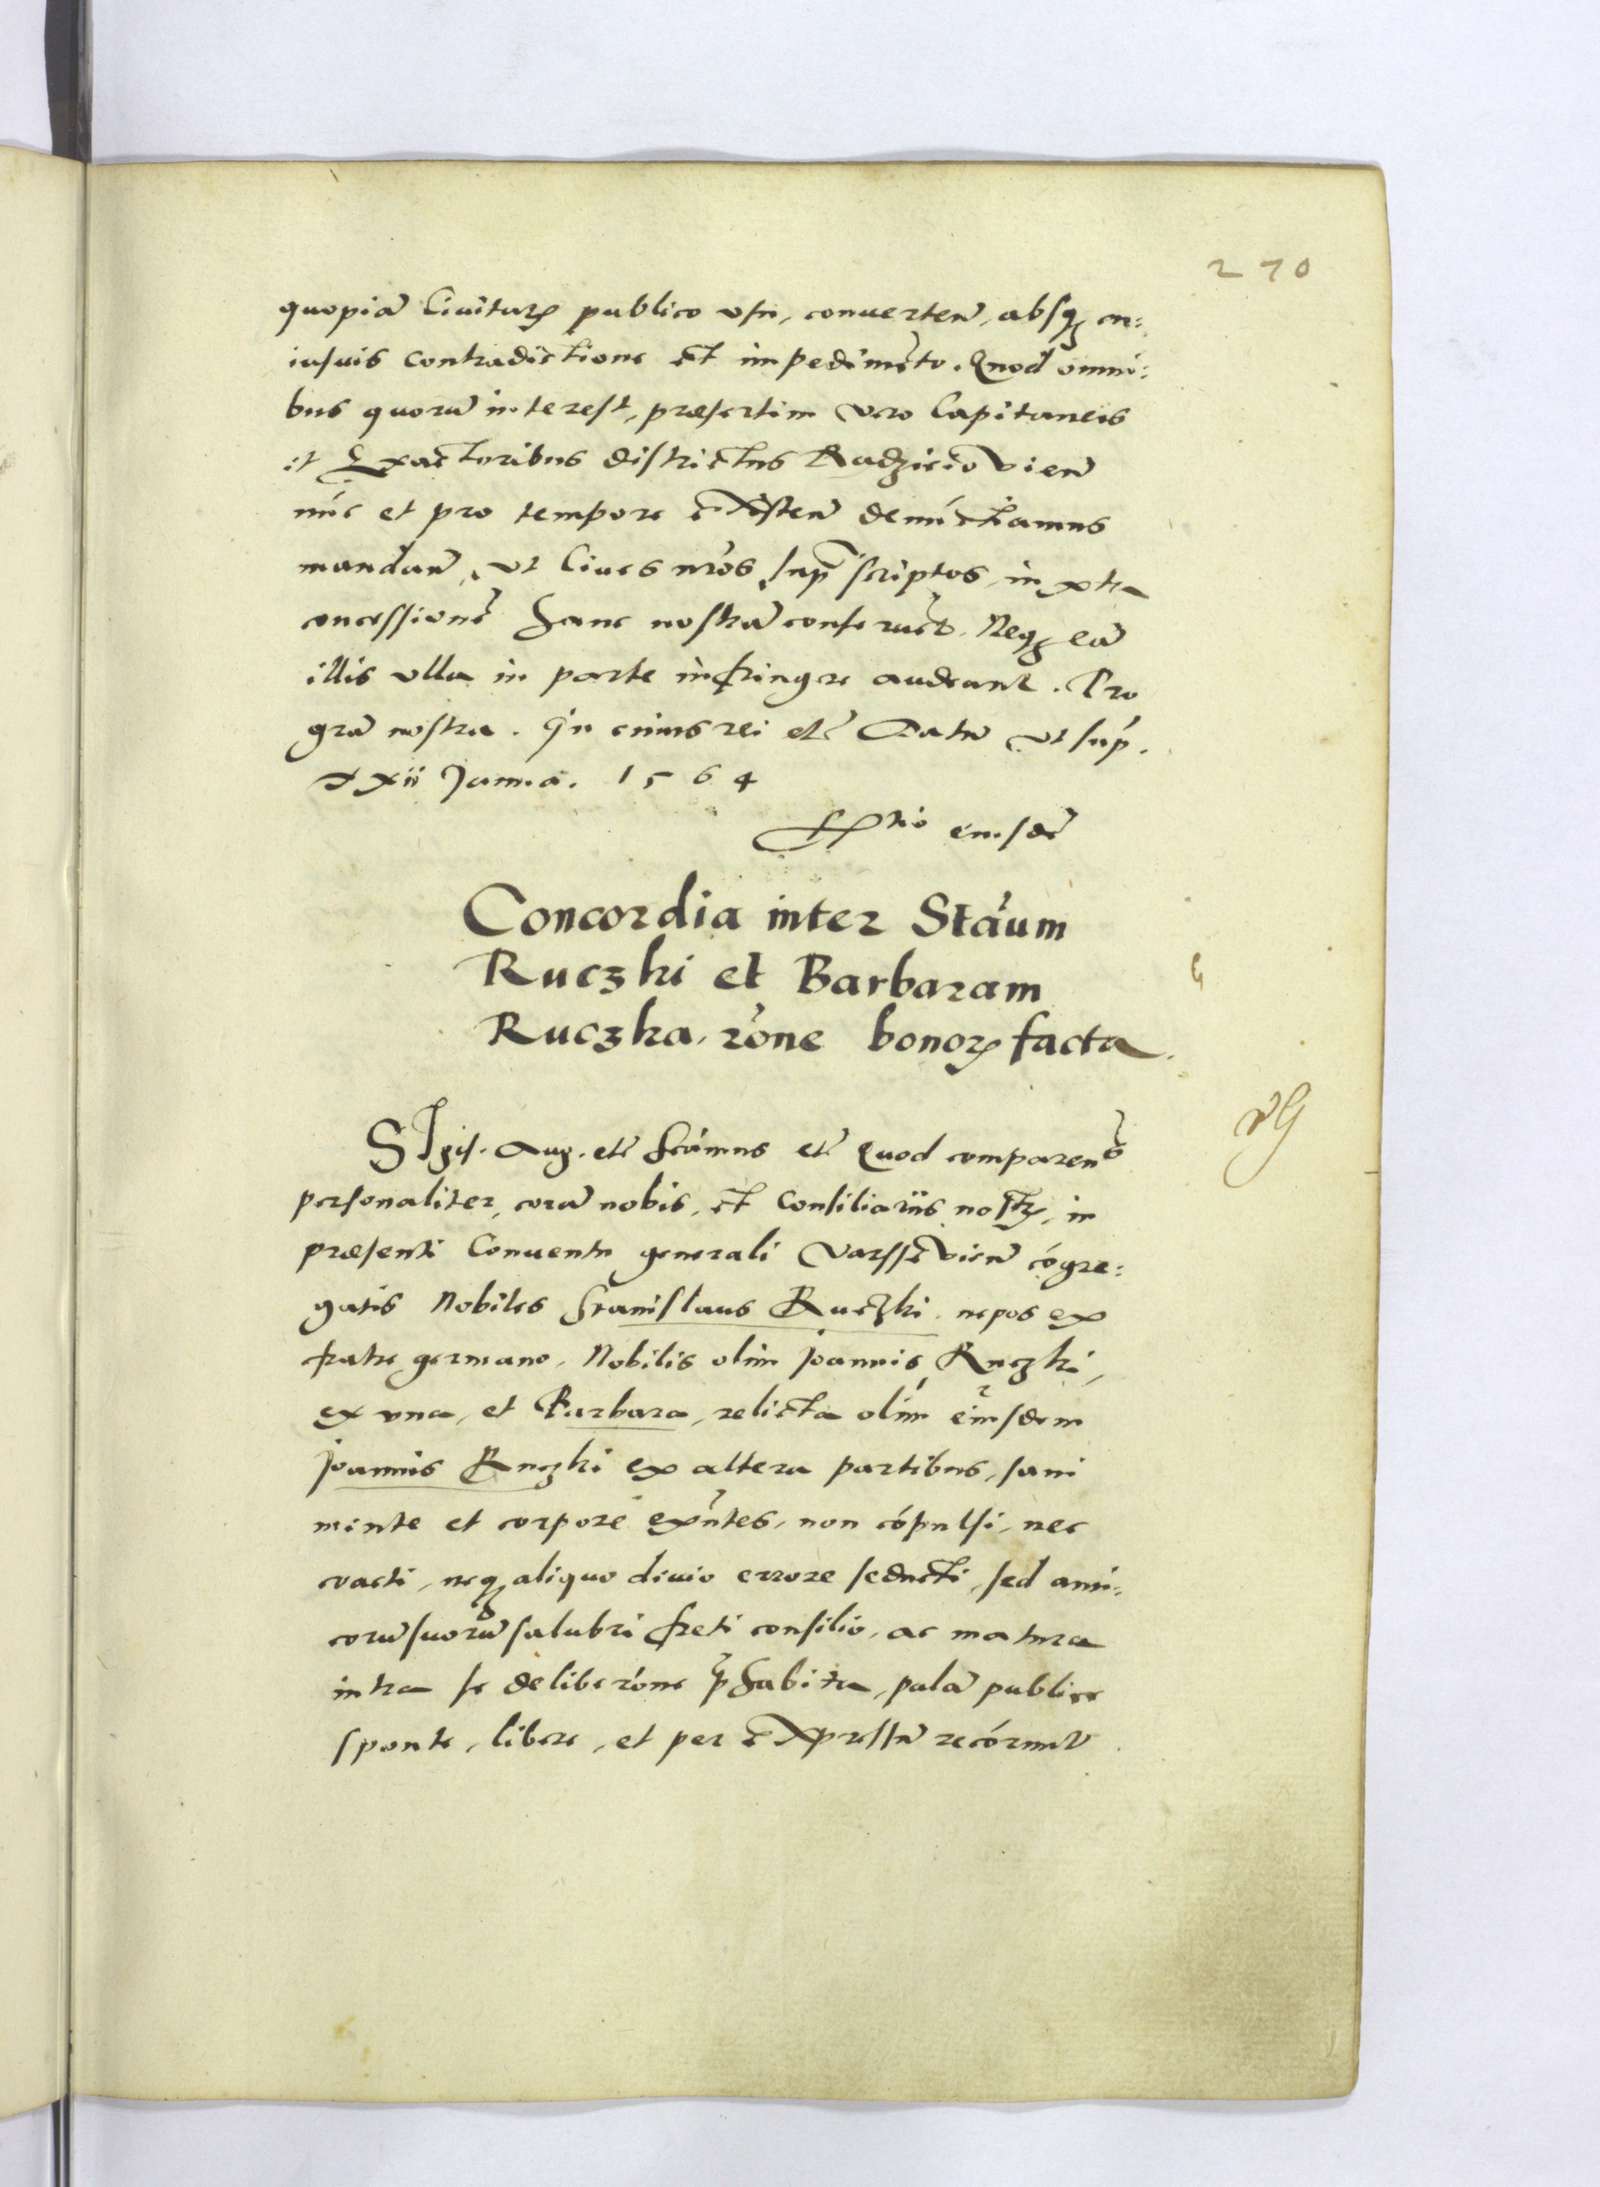 270
quopiã Ciuitatꝝ publico usu, conuerteñ, absqꝫ cu:
iusuis contradictione et impedimẽto. Quod omni:
bus quorũ interest, præsertim vero Capitaneis
et Exactoribus districtus Radzieiovieñ
núc et pro tempore existeñ denúctiamus
mandañ, ut Ciues nr̃os sup̃ scriptos, in extra
concessionẽ hanc nostrã conseruẽt. Neqꝫ eã
illis ulla in parte infringere audeant. Pro
gra᷃ nostra. In cuius rei etc̃ Datũ ut sup̃.
xxii Janua. 1564
eiusdẽ
Concordia inter Stãum
Ruczki et Barbaram
Ruczka, rõne bonoꝝ facta.
Sigis. Aug. etc̃ Scimus etc̃ Quod comparen̄
personaliter, corã nobis, et Consiliariis nostꝝ, in
præsenti Conuentu generali Varsseuieñ cógre:
gatis Nobiles Stanislaus Ruczki nepos ex
fratre germano, Nobilis olim Joannis Ruczki,
ex una, et Barbara, relicta olim eiusdem
Joannis Ruczki ex altera partibus, sani
mente et corpore exñtes, non cópulsi, nec
coacti, neqꝫ aliquo deuio errore seducti, sed ami:
corũ suorũ salubri freti consilio, ac matura
intra se deliberõne p̃habita, palã publice
sponte, libere, et per expressũ recõrunt